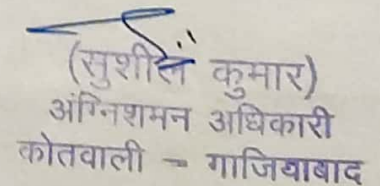 (सुशील कुमार)
अग्निशमन अधिकारी
कोतवाली - गाजियाबाद